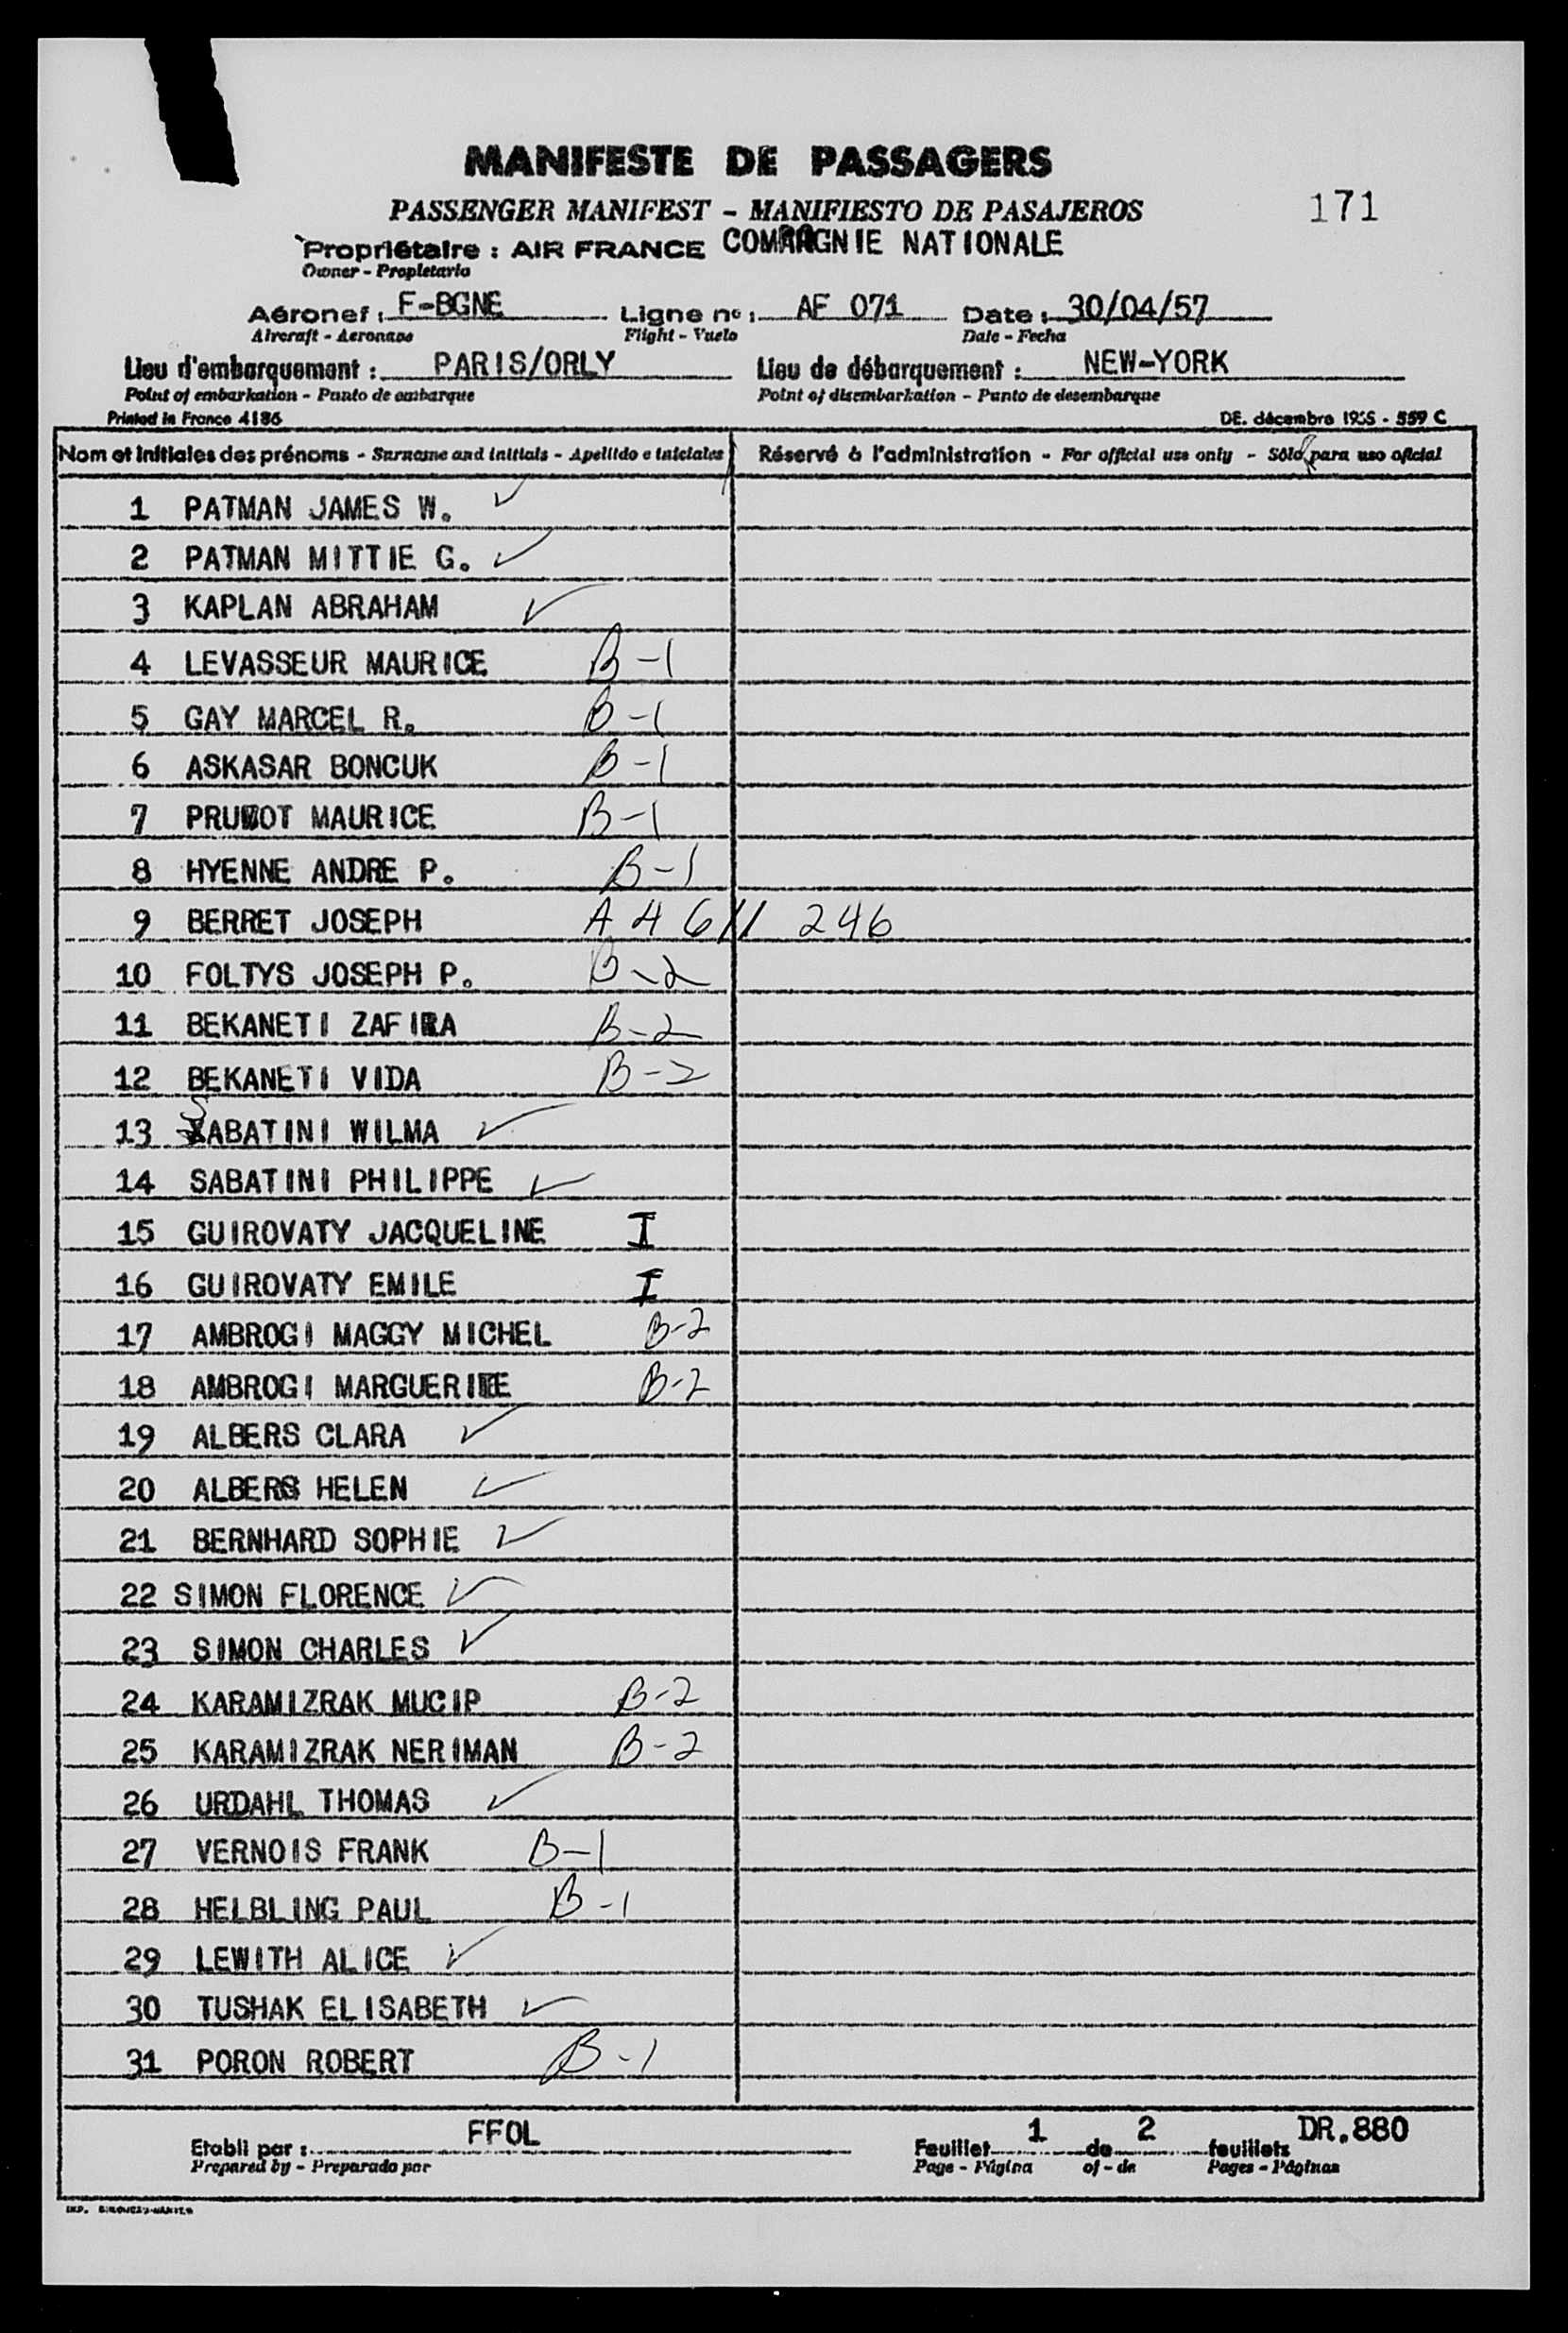 MANIFESTE DE PASSAGERS
PASSENGER MANIFEST - MANIFIESTO DE PASAJEROS
171
Propriétaire : AIR FRANCE COMPAGNIE NATIONALE
Owner - Propietario
Aéronef : F-BGNE Ligne no : AF 071 Date : 30/04/57
Aircraft - Aeronave Flight - Vuelo Date - Fecha
Lieu d'embarquement : PARIS/ORLY Lieu de débarquement : NEW-YORK
Point of embarkation - Punto de embarque Point of disembarkation - Punto de desembarque
Printed in France 4186 DE. décembre 1955 - 559 C
Nom et initiales des prénoms - Surname and initials - Apellido e iniciales Réservé à l'administration - For official use only - Sólo para uso oficial
1 PATMAN JAMES W. ✓
2 PATMAN MITTIE G. ✓
3 KAPLAN ABRAHAM ✓
4 LEVASSEUR MAURICE B-1
5 GAY MARCEL R. B-1
6 ASKASAR BONCUK B-1
7 MAURICE B-1
8 HYENNE ANDRE P. B-1
9 BERRET JOSEPH A4611 246
10 FOLTYS JOSEPH P. B-2
11 BEKANETI ZAFIRA B-2
12 BEKANETI VIDA B-2
13 SABATINI WILMA ✓
14 SABATINI PHILIPPE ✓
15 GUIROVATY JACQUELINE I
16 GUIROVATY EMILE I
17 AMBROGI MAGGY MICHEL B-2
18 AMBROGI MARGUERITE B-2
19 ALBERS CLARA ✓
20 ALBERS HELEN ✓
21 BERNHARD SOPHIE ✓
22 SIMON FLORENCE ✓
23 SIMON CHARLES ✓
24 KARAMIZRAK MUCIP B-2
25 KARAMIZRAK NERIMAN B-2
26 URDAHL THOMAS ✓
27 VERNOIS FRANK B-1
28 HELBLING PAUL B-1
29 LEWITH ALICE ✓
30 TUSHAK ELISABETH ✓
31 PORON ROBERT B-1
Etabli par : FFOL Feuillet 1 de 2 feuillets DR.880
Prepared by - Preparado por Page - Página of - de Pages - Páginas
IMP.